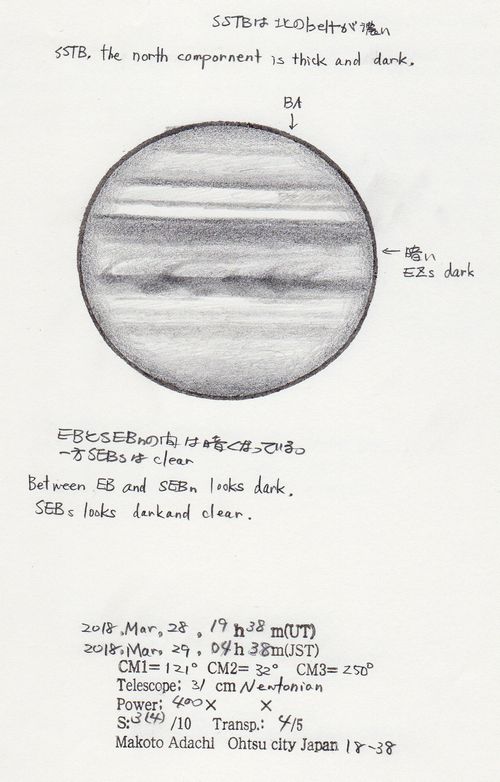 SSTBは北のbeltが濃い
SSTB, the north compornent is thick and dark.
BA
↓
←暗い
EZs dark
EBとSEBnの間は暗くなっている。
一方SEBsはclear
Between EB and SEBn looks dark.
SEBs looks darkand clear.
2018, Mar, 28, 19h38m(UT)
2018, Mar, 29, 04h38m(JST)
CM1=121° CM2=32° CM3=250°
Telescope; 31 cm Newtonian
Power; 400× ×
S:3(4)/10 Transp.: 4/5
Makoto Adachi Ohtsu city Japan 18-38